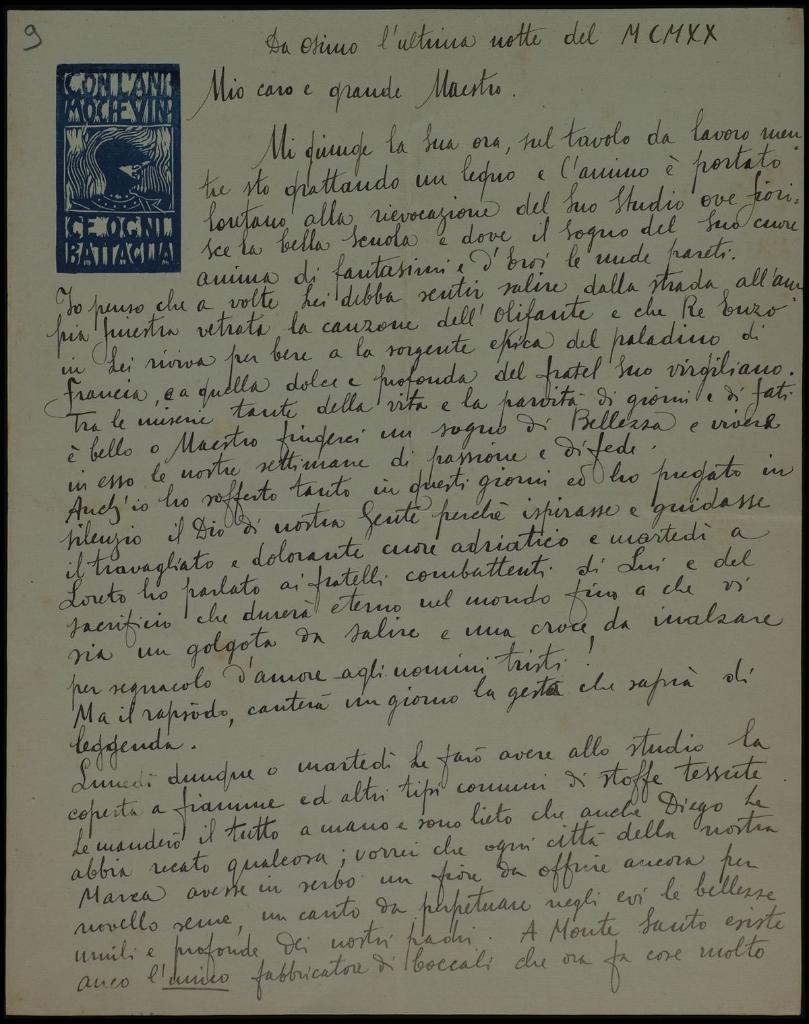 9
Da Osimo l'ultima notte del MCMXX
CON L'ANI
MO CHE VIN
CE OGNI
BATTAGLIA
Mio caro e grande Maestro.
Mi giunge la Sua ora, sul tavolo da lavoro men
tre sto grattando un legno e l'animo è portato
lontano alla rievocazione del Suo Studio ove fiori=
sce la bella Scuola e dove il sogno del Suo cuore
anima di fantasimi e d'Eroi le nude pareti.
Io penso che a volte Lei debba sentir salire dalla strada all'am
pia finestra vetrata la canzone dell'Olifante e che Re Enzo
in Lei riviva per bere a la sorgente epica del paladino di
Francia, e a quella dolce e profonda del fratel Suo virgiliano.
Tra le miserie tante della vita e la parvità di giorni e di fati
è bello o Maestro fingerci un sogno di Bellezza e vivere
in esso le nostre settimane di passione e di fede.
Anch'io ho sofferto tanto in questi giorni ed ho pregato in
silenzio il Dio di nostra Gente perchè ispirasse e guidasse
il travagliato e dolorante cuore adriatico e martedì a
Loreto ho parlato ai fratelli combattenti di Lui e del
sacrificio che durerà eterno nel mondo fino a che vi
sia un golgota da salire e una croce da inalzare
per segnacolo d'amore agli uomini tristi!
Ma il rapsòdo, canterà un giorno la gesta che saprà di
leggenda.
Lunedì dunque o martedì Le farò avere allo studio la
coperta a fiamme ed altri tipi comuni di stoffe tessute
Le manderò il tutto a mano e sono lieto che anche Diego Le
abbia recato qualcosa; vorrei che ogni città della nostra
Marca avesse in serbo un fiore da offrire ancora per
novello seme, un canto da perpetuare negli evi le bellezze
umili e profonde dei nostri padri. A Monte Santo esiste
anco l'unico fabbricatore di boccali che ora fa cose molto